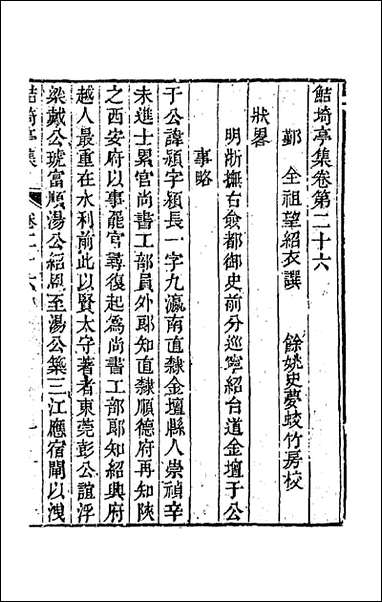 鮚埼亭集卷第二十六
鄞 全祖望紹衣譔 餘姚史夢蛟竹房校
狀畧
明浙撫右僉都御史前分巡寧紹台道金壇于公
事略
于公諱潁字潁長一字九瀛南直隸金壇縣人崇禎辛
未進士累官尚書工部員外郎知直隸順德府再知陝
之西安府以事罷官尋復起爲尚書工部郎知紹興府
越人最重在水利前此以賢太守著者東莞彭公誼浮
梁戴公琥富順湯公紹恩至湯公築三江應宿閘以洩
鮚埼亭集 卷二十六 一